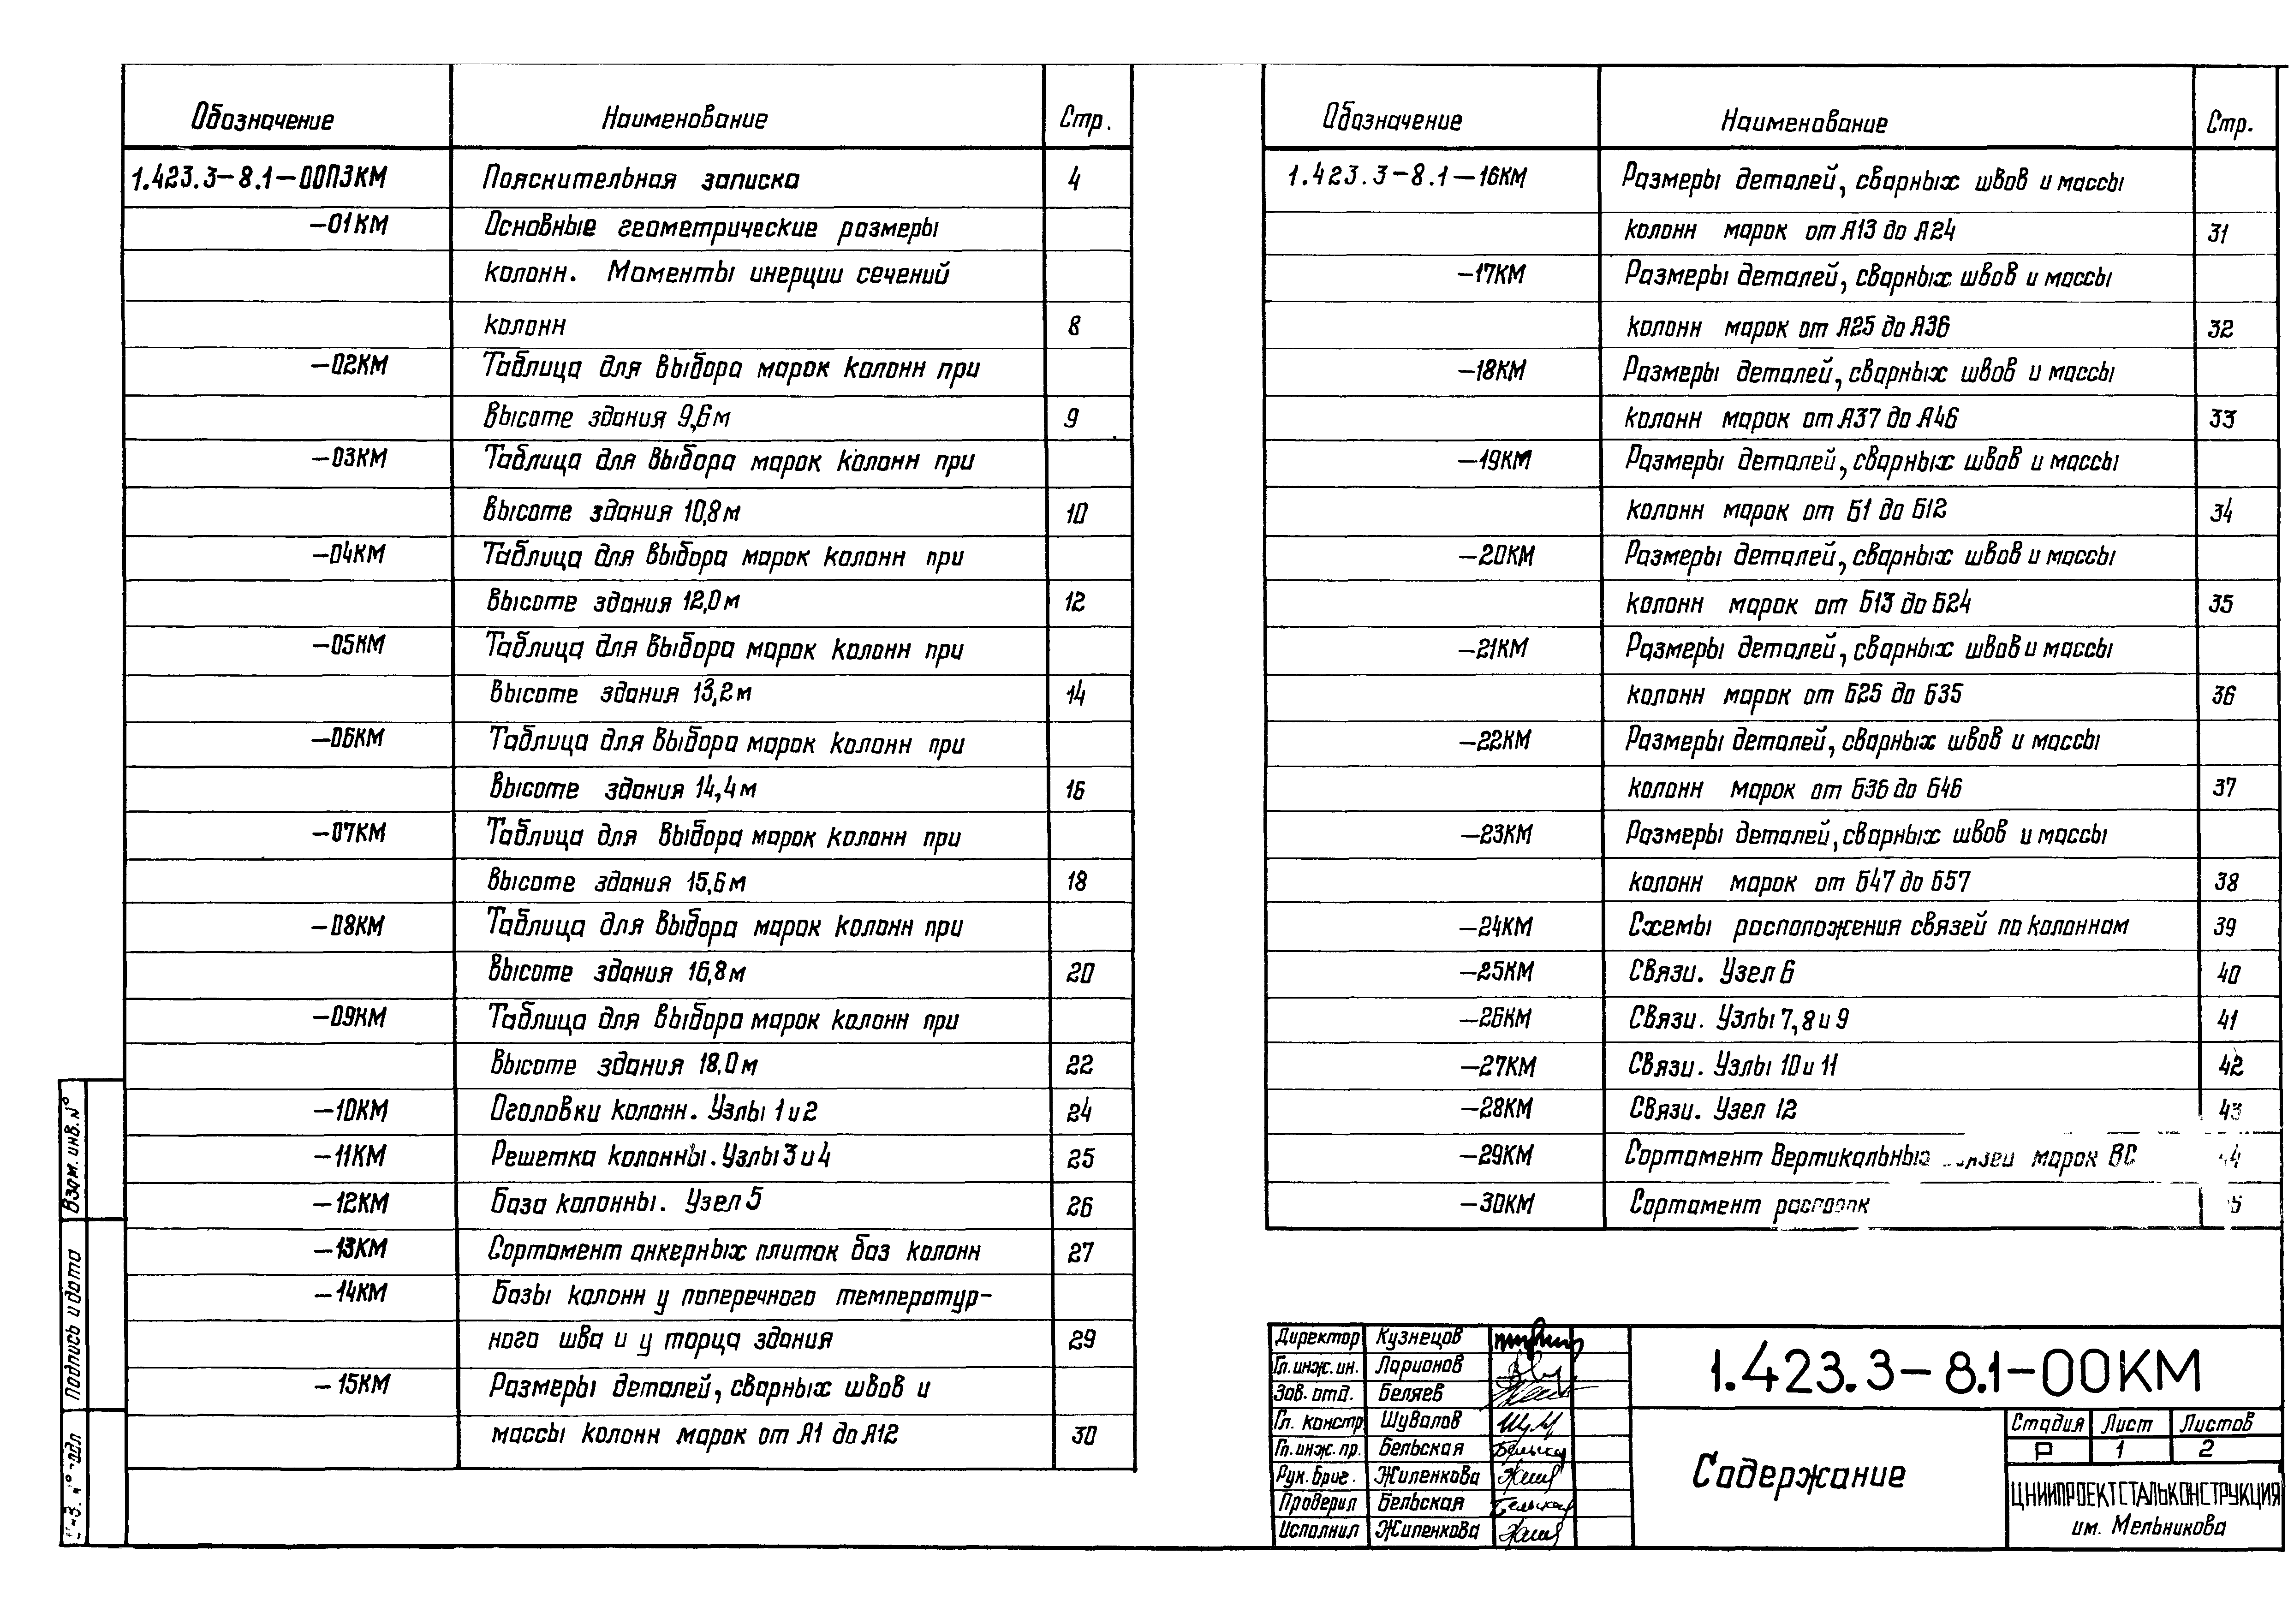 Обозначение Наименование Стр.
1.423.3-8.1-00ПЗКМ Пояснительная записка 4
-01КМ Основные геометрические размеры
колонн. Моменты инерции сечений
колонн 8
-02КМ Таблица для выбора марок колонн при
высоте здания 9,6м 9
-03КМ Таблица для выбора марок колонн при
высоте здания 10,8м 10
-04КМ Таблица для выбора марок колонн при
высоте здания 12,0м 12
-05КМ Таблица для выбора марок колонн при
высоте здания 13,2м 14
-06КМ Таблица для выбора марок колонн при
высоте здания 14,4м 16
-07КМ Таблица для выбора марок колонн при
высоте здания 15,6м 18
-08КМ Таблица для выбора марок колонн при
высоте здания 16,8м 20
-09КМ Таблица для выбора марок колонн при
высоте здания 18,0м 22
-10КМ Оголовки колонн. Узлы 1 и 2 24
-11КМ Решетка колонны. Узлы 3 и 4 25
-12КМ База колонны. Узел 5 26
-13КМ Сортамент анкерных плиток баз колонн 27
-14КМ Базы колонн у поперечного температур-
ного шва и у торца здания 29
-15КМ Размеры деталей, сварных швов и
массы колонн марок от А1 до А12 30
Обозначение Наименование Стр.
1.423.3-8.1-16КМ Размеры деталей, сварных швов и массы
колонн марок от А13 до А24 31
-17КМ Размеры деталей, сварных швов и массы
колонн марок от А25 до А36 32
-18КМ Размеры деталей, сварных швов и массы
колонн марок от А37 до А46 33
-19КМ Размеры деталей, сварных швов и массы
колонн марок от Б1 до Б12 34
-20КМ Размеры деталей, сварных швов и массы
колонн марок от Б13 до Б24 35
-21КМ Размеры деталей, сварных швов и массы
колонн марок от Б25 до Б35 36
-22КМ Размеры деталей, сварных швов и массы
колонн марок от Б36 до Б46 37
-23КМ Размеры деталей, сварных швов и массы
колонн марок от Б47 до Б57 38
-24КМ Схемы расположения связей по колоннам 39
-25КМ Связи. Узел 6 40
-26КМ Связи. Узлы 7, 8 и 9 41
-27КМ Связи. Узлы 10 и 11 42
-28КМ Связи. Узел 12 43
-29КМ Сортамент вертикальных связей марок ВС
-30КМ Сортамент распорок
Взам. инв. №
Подпись и дата
Директор Кузнецов
Гл. инж. ин. Ларионов
Зав. отд. Беляев
Гл. констр Шувалов
Гл. инж. пр. Бельская
Рук. Бриг. Жиленкова
Проверил Бельская
Исполнил Жиленкова
1.423.3-8.1-00КМ
Содержание
Стадия Лист Листов
Р 1 2
ЦНИИПРОЕКТСТАЛЬКОНСТРУКЦИЯ
им. Мельникова